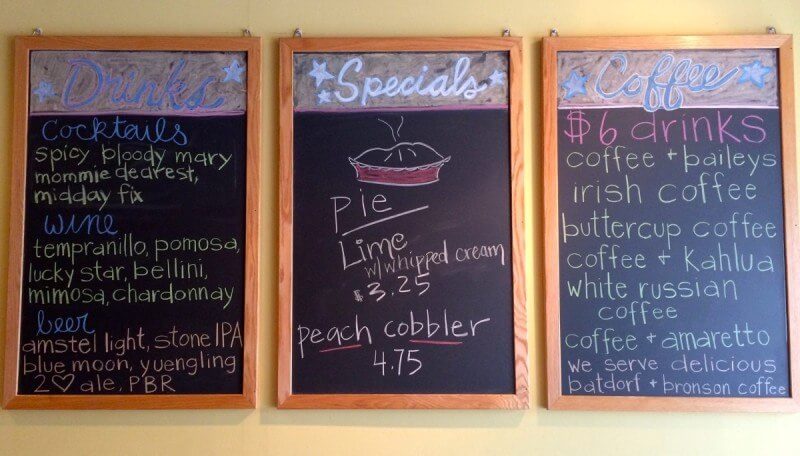 Drinks
cocktails
spicy bloody mary
mommie dearest,
midday fix
wine
tempranillo, pomosa,
lucky star, bellini,
mimosa, chardonnay
beer
amstel light, stone IPA
blue moon, yuengling
2♡ ale, PBR
Specials
Pie
Lime
w/whipped cream
$3.25
peach cobbler
4.75
Coffee
$6 drinks
coffee + baileys
irish coffee
buttercup coffee
coffee + Kahlua
white russian
coffee
coffee + amaretto
we serve delicious
batdorf + bronson coffee